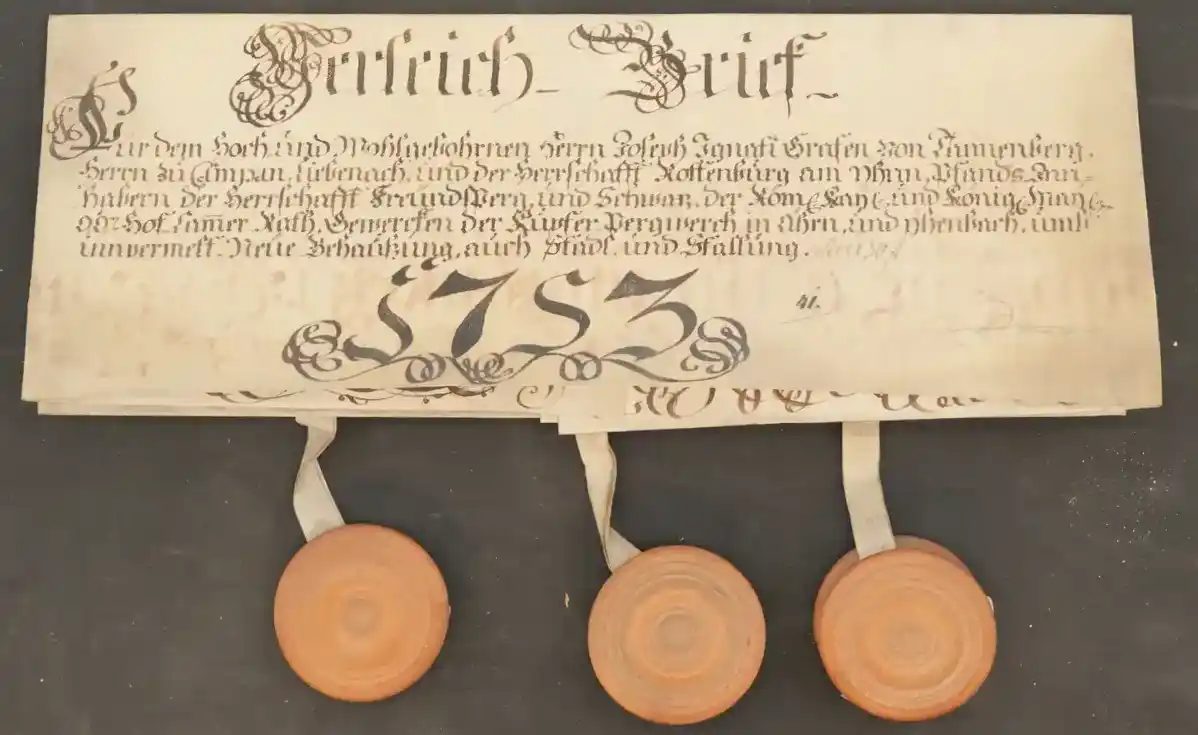 Verleich- Brief
Für dem Hoch, und Wohlgebohrnen Herrn Joseph Ignati Grafen von Tannenberg,
Herrn zu Campan, Liebenach, und der Herrschafft Rottenburg am Yhnn, Pfands Inn=
habern der Herrschafft Freundsperg, und Schwaz, der Röm: Kay: und König: May:
OÖ: Hof Cam̅er Rath, Gewercken der Kupfer Pergwerch in Ahrn, und Yhenbach, umb
unvermelt. Neue Behaußung, auch Städl, und Stallung.
1753
41.